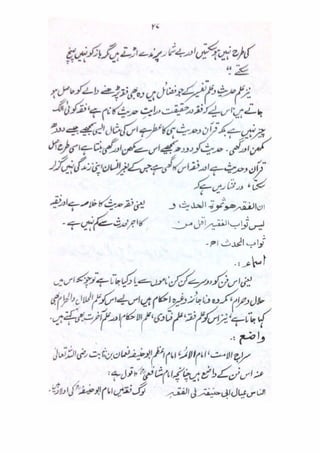 ۲۷
کی طرح نہیں ہو سکتیں اور بے شمار پرندے اڑتے ہیں مگر باز کو نہیں پہنچ
سکتے"
نیز علم حدیث و علم تفسیر کے جو فضائل ہیں وہ بھی فقہ پڑھنے والے کو حاصل ہو
جاتے ہیں اس لیے کہ فقہ در حقیقت درایت حدیث کا نام ہے فقہ کوئی الگ
چیز نہیں ہے بلکہ قرآن و حدیث ہی کا عطر ہے اس کی مثال ایسی سمجھئے جیسے دودھ
مکھن اور گھی، حدیث گویا دودھ سمجھئے اس سے مکھن اور گھی بنتا ہے اسی طرح اصل
قرآن و حدیث ہے اور فقہ اس کا گھی ہے جس کے بغیر انسان اپنی زندگی نہیں گزار
سکتا، در مختار میں ہے کہ
ان الفقه هو ثمرة الحديث و یعنی فقہ حدیث کا خلاصہ ہے اور فقیہ
ليس ثواب الفقيه اقل من کا اجر محدث سے کم نہیں ہے۔
ثواب المحدث اھ۔
اسماء:۔
یعنی اس فن کو دوسرے کن کن ناموں سے یاد کیا جاتا ہے تو چونکہ اس میں
حلال و حرام، مکروہ ناجائز وغیرہ احکام ہیں اس لیے اس کو علم الحلال والحرام بھی
کہا جاتا ہے، نیز اس کو علم فقہ، علم فتاوی، علم الاحکام اور علم آخرت بھی کہتے ہیں۔
واضع:۔
سراج الامت، امام الائمہ، امام اعظم ابوحنیفہ نعمان بن ثابت رضی اللہ تعالی
عنہ اس فن کے واضع ہیں چنانچہ امام شافعی کا قول ہے:
الناس عيال ابی حنیفة فی الفقه لوگ فقہ میں امام ابوحنیفہ کی اولاد ہیں۔